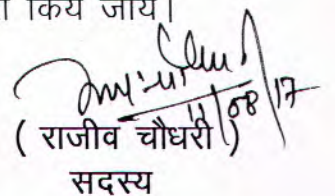 किये जाय।
11/08/17
( राजीव चौधरी )
सदस्य